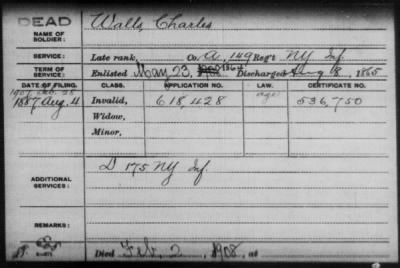 DEAD Walls, Charles
NAME OF SOLDIER:
SERVICE: Late rank, Co. A, 149 Reg't NY Inf.
TERM OF SERVICE: Enlisted May 23, 1864 Discharged Aug 8, 1865
DATE OF FILING. CLASS. APPLICATION NO. LAW. CERTIFICATE NO.
1907 Feb. 25 Age
1887 Aug. 4 Invalid, 618,428 536,750
Widow,
Minor,
ADDITIONAL SERVICES: D 175 NY Inf.
REMARKS:
Died Feb. 2, 1908, at